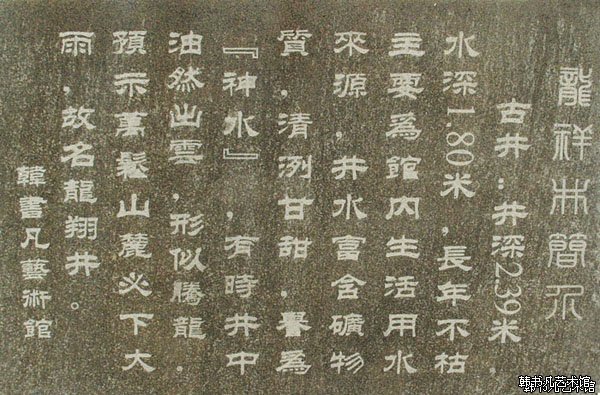 龍祥井簡介
古井：井深2.39米，
水深1.80米，長年不枯
主要爲館内生活用水
來源，井水富含礦物
質，清洌甘甜，譽爲
『神水』，有時井中
油然出雲，形似騰龍，
預示萬鬆山麓必下大
雨，故名龍翔井。
韓書凡藝術館
韩书凡艺术馆